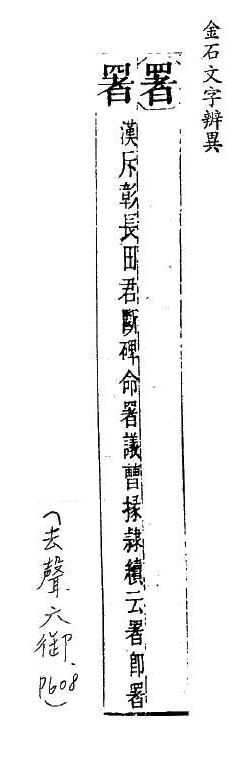 金石文字辨異
署
署漢斥彰長田君斷碑命署議曹掾隷續云署即署
(去聲.六御.P608)